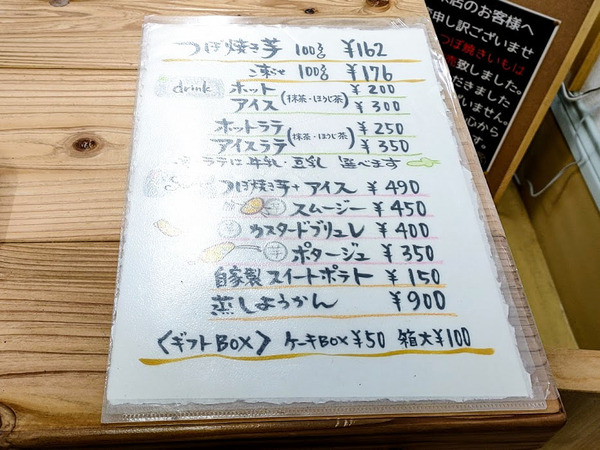 つぼ焼き芋 100g ¥162
100g ¥176
drink ホット ¥200
アイス (抹茶・ほうじ茶) ¥300
ホットラテ ¥250
アイスラテ (抹茶・ほうじ茶) ¥350
※ ラテは牛乳・豆乳 選べます
つぼ焼き芋+アイス ¥490
芋 スムージー ¥450
芋 カスタードブリュレ ¥400
芋 ポタージュ ¥350
自家製スイートポテト ¥150
蒸しようかん ¥900
〈ギフトBOX〉 ケーキBOX ¥50 箱大 ¥100
店のお客様へ
申し訳ございませ
つぼ焼きいもは
売致しました。
だきました
いません。
心から
す。